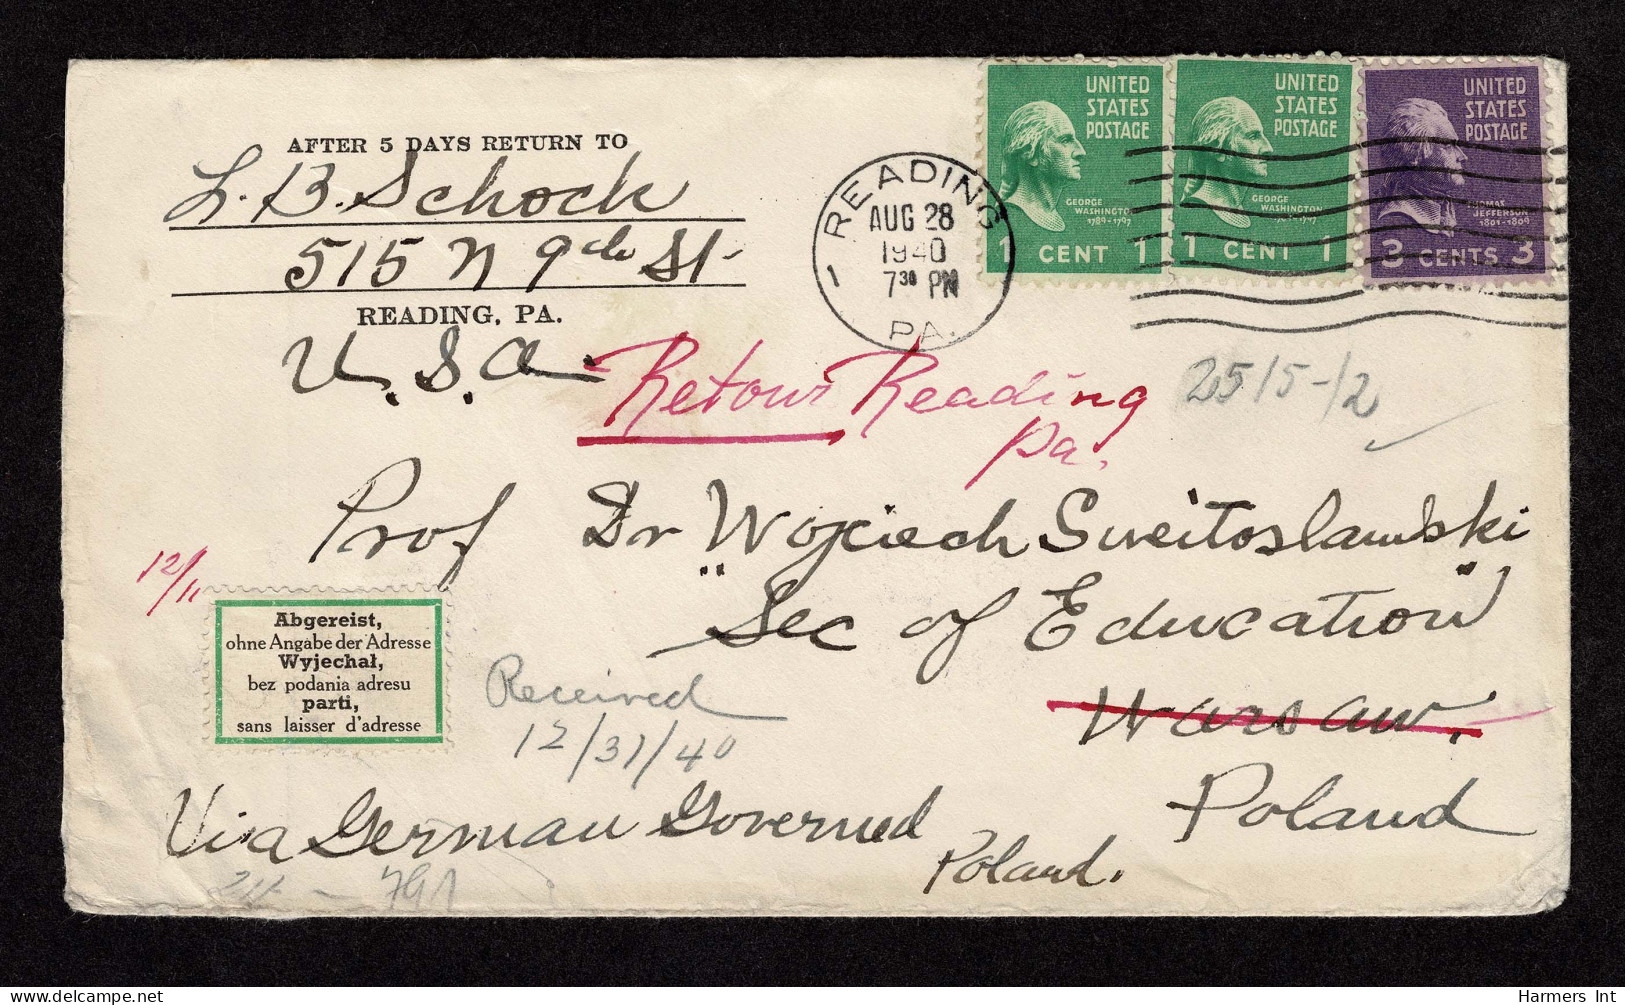 AFTER 5 DAYS RETURN TO
L. B. Schock
515 N 9th St
READING, PA.
U.S.A
READING
AUG 28
1940
7 30 PM
PA.
UNITED
STATES
POSTAGE
GEORGE
WASHINGTON
1789-1797
1 CENT 1
UNITED
STATES
POSTAGE
GEORGE
WASHINGTON
1789-1797
1 CENT 1
UNITED
STATES
POSTAGE
THOMAS
JEFFERSON
1801-1809
3 CENTS 3
Retour Reading
Pa.
2515-12
Prof Dr Wojciech Sweitoslawski
"Sec of Education"
Warsaw.
Poland
12/11
Abgereist,
ohne Angabe der Adresse
Wyjechał,
bez podania adresu
parti,
sans laisser d'adresse
Received
12/31/40
Via German Governed
Poland.
delcampe.net
Harmers Int